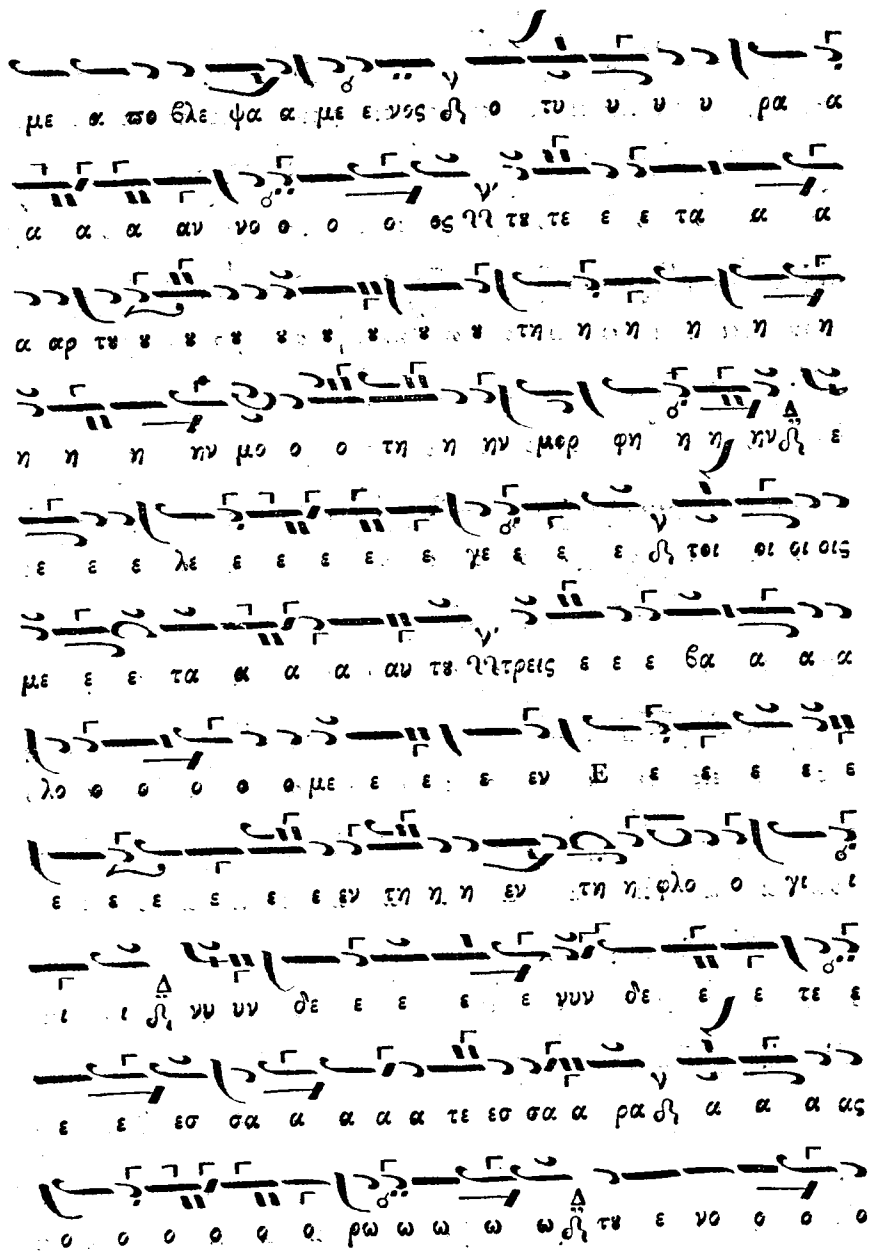 με α πο βλε ψα α με ε νος ο τυ υ υ υ ρα α
α α α αν νο ο ο ο ος τȣ τε ε ε τα α α
α αρ τȣ ȣ ȣ ȣ ȣ ȣ ȣ ȣ ȣ τη η η η η η
η η η ην μο ο ο τη η ην μορ φη η η ην ε
ε ε ε λε ε ε ε ε ε γε ε ε ε τοι οι οι οις
με ε ε τα α α α αυ τȣ τρεις ε ε ε βα α α α
λο ο ο ο ο ο με ε ε ε εν Ε ε ε ε ε ε
ε ε ε ε ε ε εν τη η η εν τη η φλο ο γι ι
ι ι νυ υν δε ε ε ε ε νυν δε ε ε τε ε
ε ε εσ σα α α α α τε εσ σα α ρα α α α ας
ο ο ο ο ο ο ρω ω ω ω ω τȣ ε νο ο ο ο